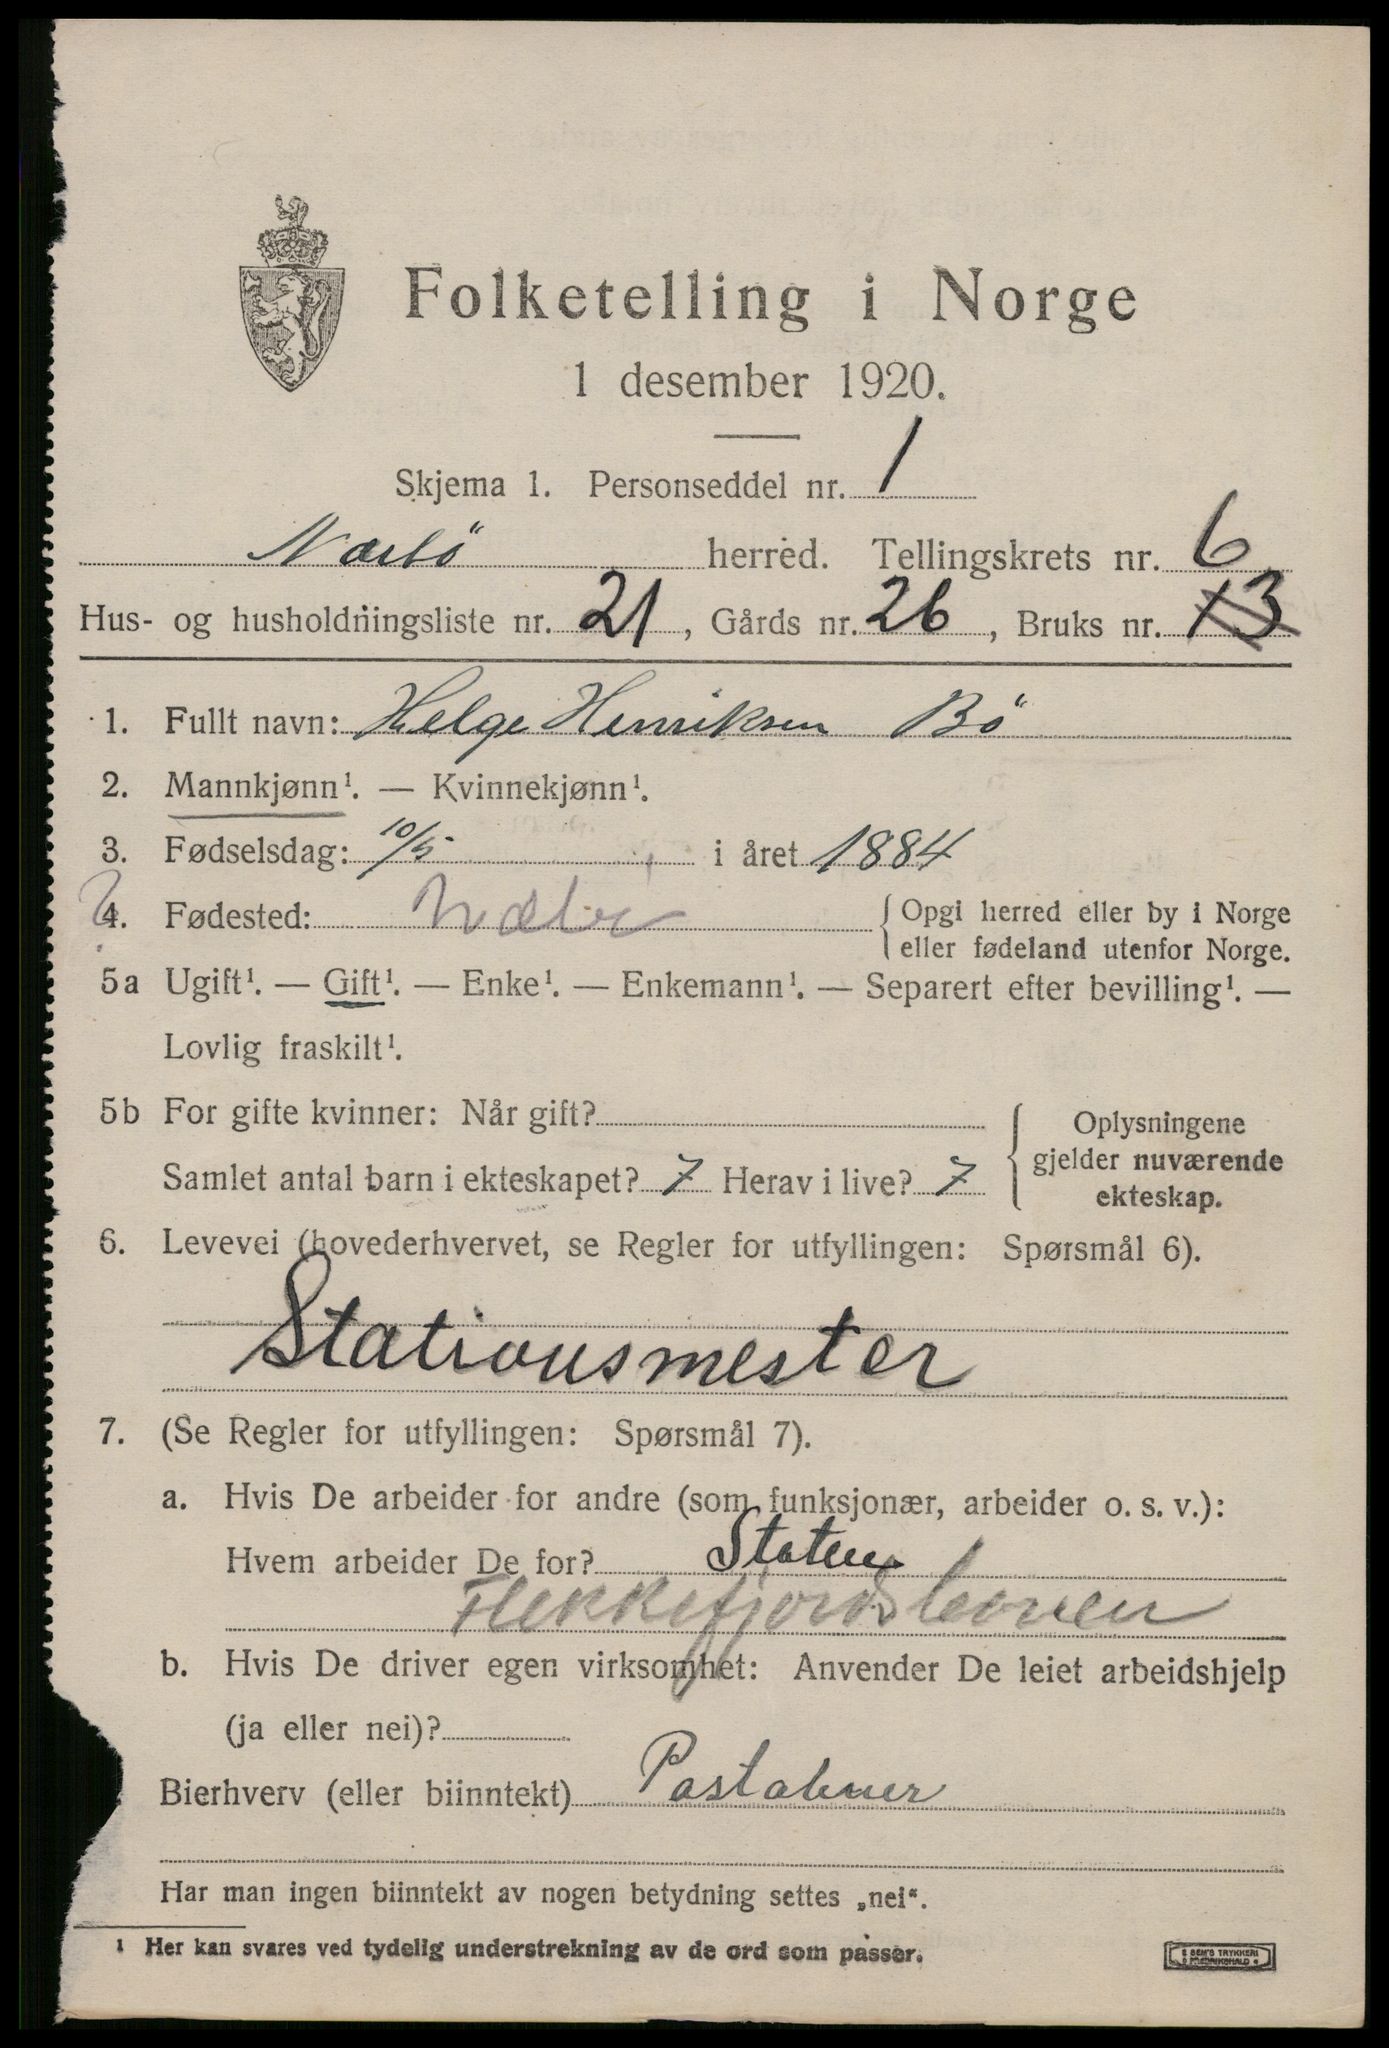 Folketelling i Norge
1 desember 1920.
Skjema 1. Personseddel nr. 1
Nærbö herred. Tellingskrets nr. 6
Hus- og husholdningsliste nr. 21, Gårds nr. 26, Bruks nr. 13
1. Fullt navn: Helge Henriksen Bö
2. Mannkjønn¹. — Kvinnekjønn¹.
3. Fødselsdag: 10/5 i året 1884
? 4. Fødested: { Opgi herred eller by i Norge
eller fødeland utenfor Norge.
5a Ugift¹. — Gift¹. — Enke¹. — Enkemann¹. — Separert efter bevilling¹. —
Lovlig fraskilt¹.
5b For gifte kvinner: Når gift?
Samlet antal barn i ekteskapet? 7 Herav i live? 7
{ Oplysningene
gjelder nuværende
ekteskap.
6. Levevei (hovederhvervet, se Regler for utfyllingen: Spørsmål 6).
Stationsmester
7. (Se Regler for utfyllingen: Spørsmål 7).
a. Hvis De arbeider for andre (som funksjonær, arbeider o. s. v.):
Hvem arbeider De for? Staten
Flekkefjordsbanen
b. Hvis De driver egen virksomhet: Anvender De leiet arbeidshjelp
(ja eller nei)?
Bierhverv (eller biinntekt) Postabner
Har man ingen biinntekt av nogen betydning settes „nei“.
¹ Her kan svares ved tydelig understrekning av de ord som passer.
SEM'S TRYKKERI
FREDRIKSHALD